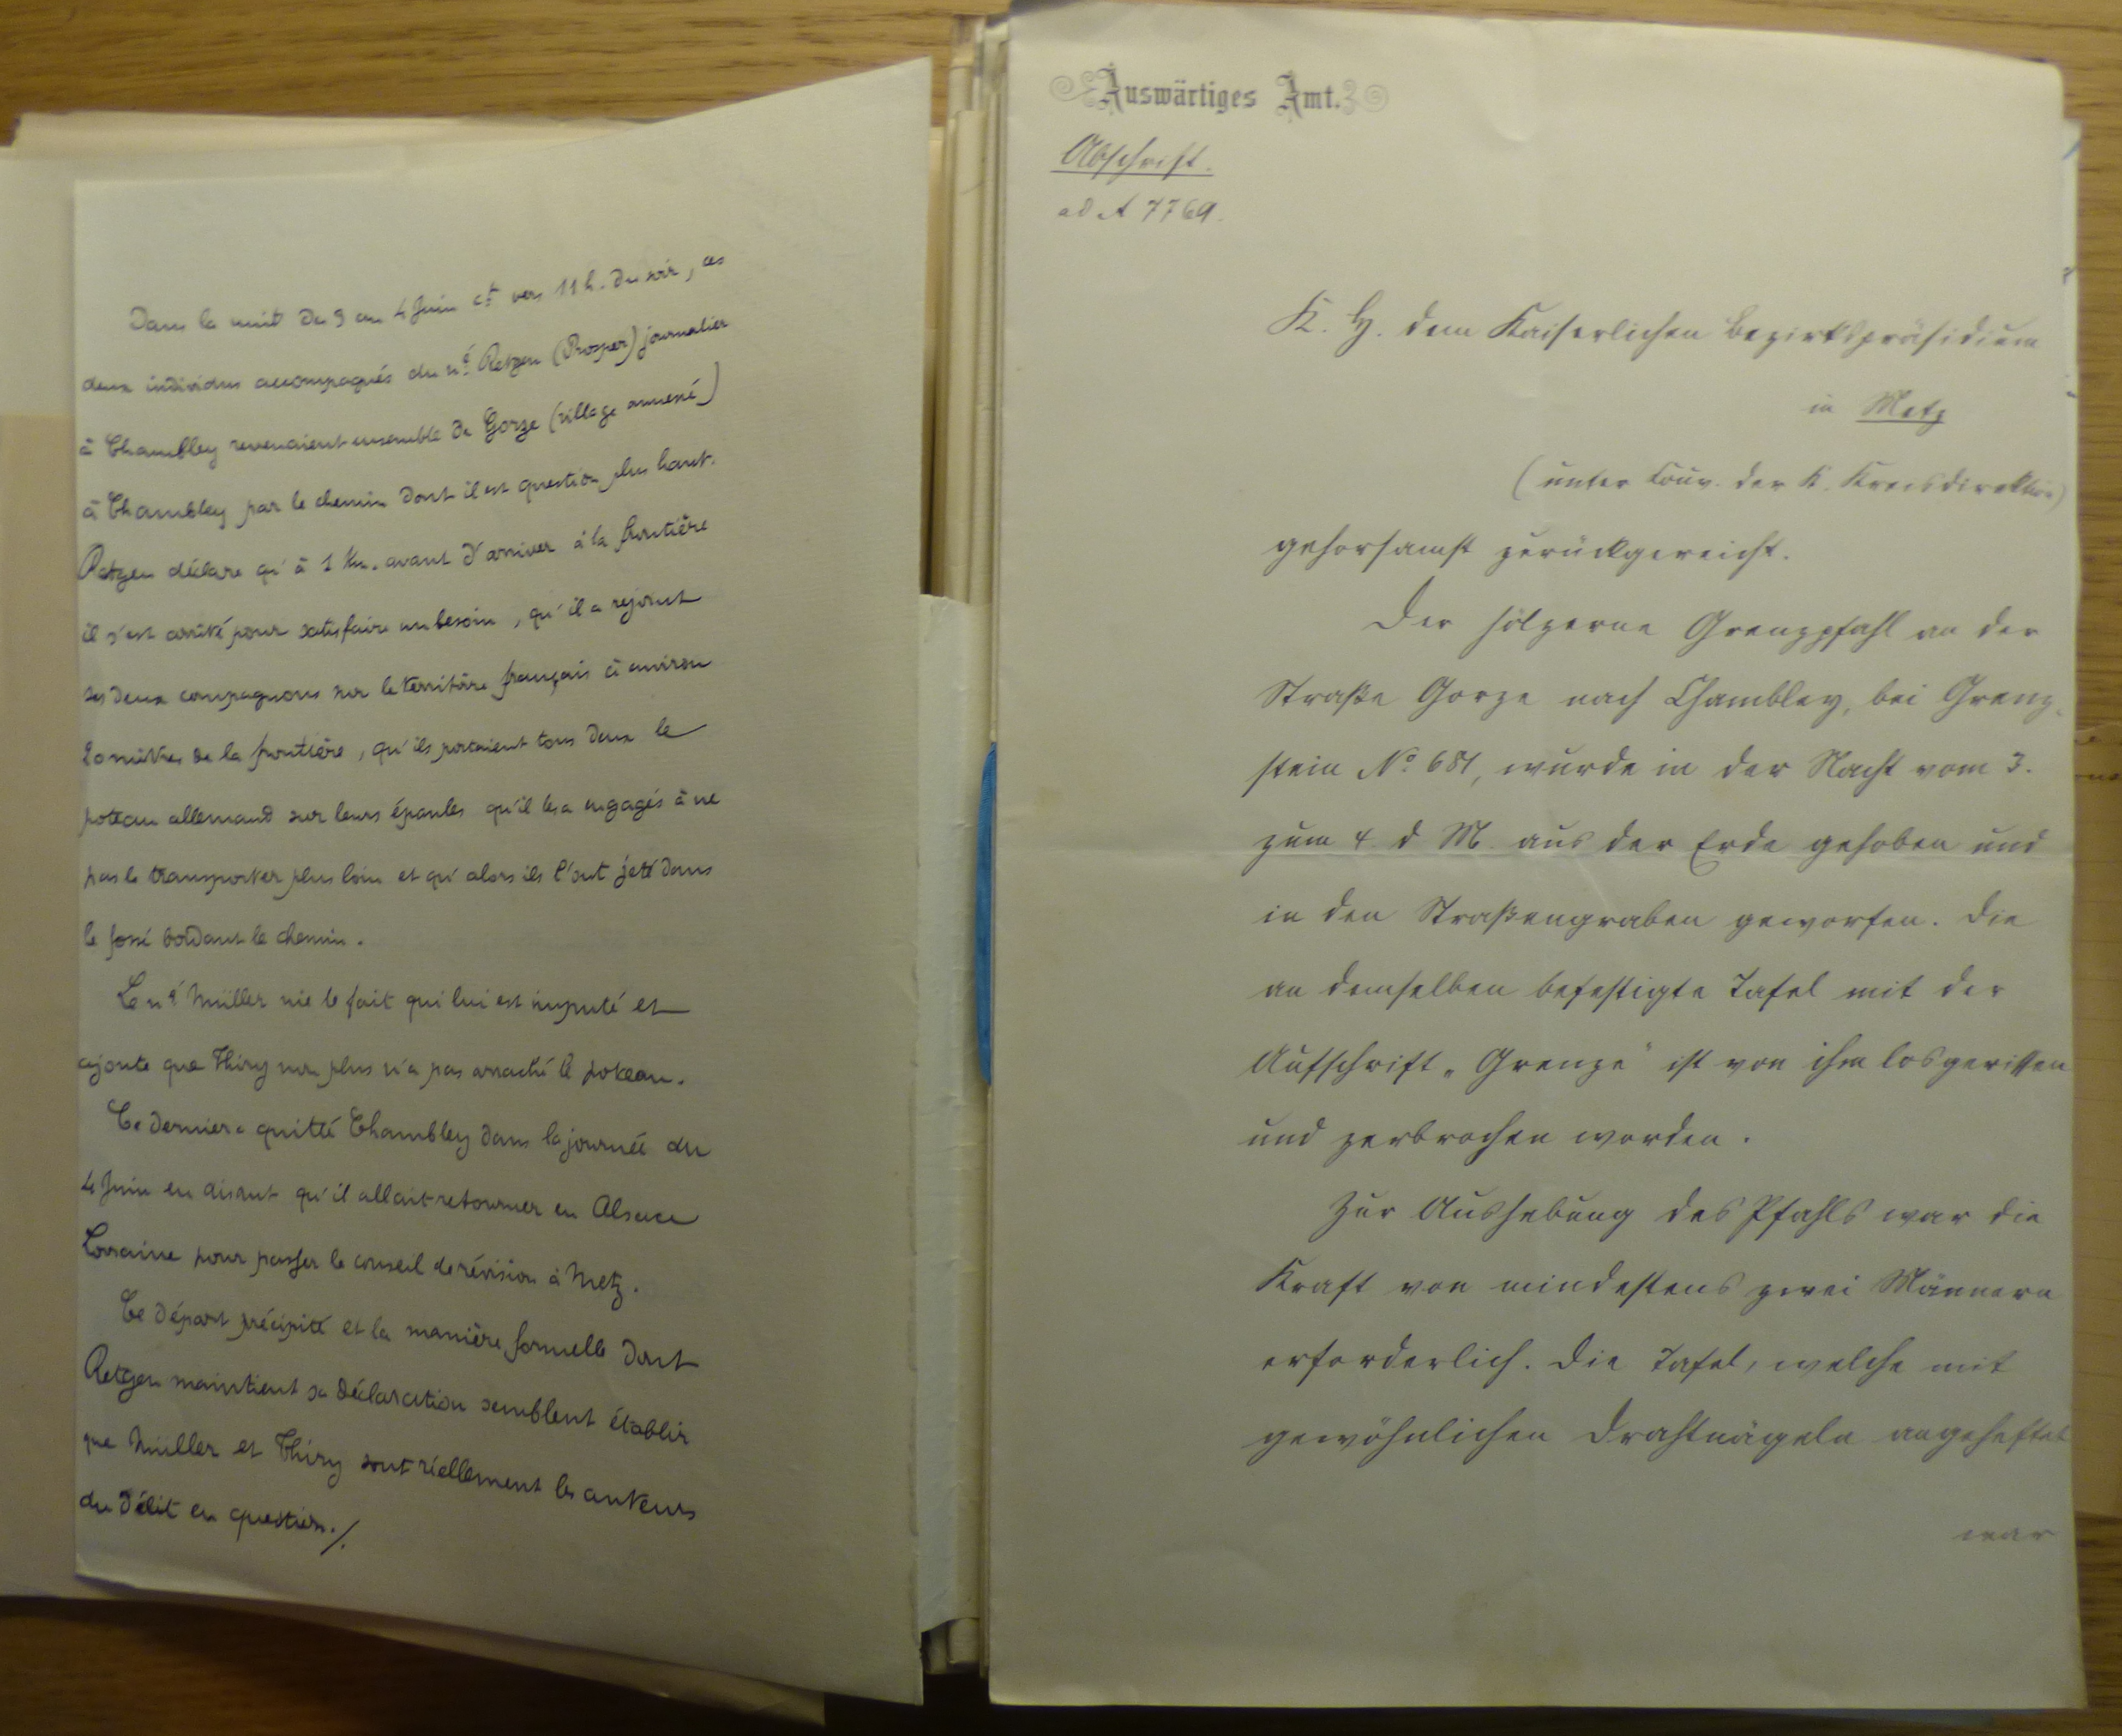 Dans la nuit du 3 au 4 Juin ct vers 11 h. du soir, ces
deux individus accompagnés du né Retgen (Prosper) journalier
à Chambley revenaient ensemble de Gorze (village annexé)
à Chambley par le chemin dont il est question plus haut.
Retgen déclare qu'à 1 Km. avant d'arriver à la frontière
il s'est arrêté pour satisfaire un besoin, qu'il a rejoint
ses deux compagnons sur le territoire français à environ
20 mètres de la frontière, qu'ils portaient tous deux le
poteau allemand sur leurs épaules qu'il les a engagés à ne
pas le transporter plus loin et qu'alors ils l'ont jeté dans
le fossé bordant le chemin.
Le né Müller nie le fait qui lui est imputé et
ajoute que Thiry non plus n'a pas arraché le poteau.
Ce dernier a quitté Chambley dans la journée du
4 Juin en disant qu'il allait retourner en Alsace
Lorraine pour passer le conseil de révision à Metz.
Ce départ précipité et la manière formelle dont
Retgen maintient sa déclaration semblent établir
que Müller et Thiry sont réellement les auteurs
du délit en question./.
Auswärtiges Amt.
Abschrift.
ad A 7769.
K. H. dem Kaiserlichen Bezirkspräsidium
in Metz
(unter Couv. der K. Kreisdirektion)
gehorsamst zurückgereicht.
Der hölzerne Grenzpfahl an der
Straße Gorze nach Chambley, bei Grenz-
stein No 681, wurde in der Nacht vom 3.
zum 4. d M. aus der Erde gehoben und
in den Straßengraben geworfen. Die
an demselben befestigte Tafel mit der
Aufschrift „Grenze" ist von ihm losgerissen
und zerbrochen worden.
Zur Aushebung des Pfahls war die
Kraft von mindestens zwei Männern
erforderlich. Die Tafel, welche mit
gewöhnlichen Drahtnägeln angeheftet
war